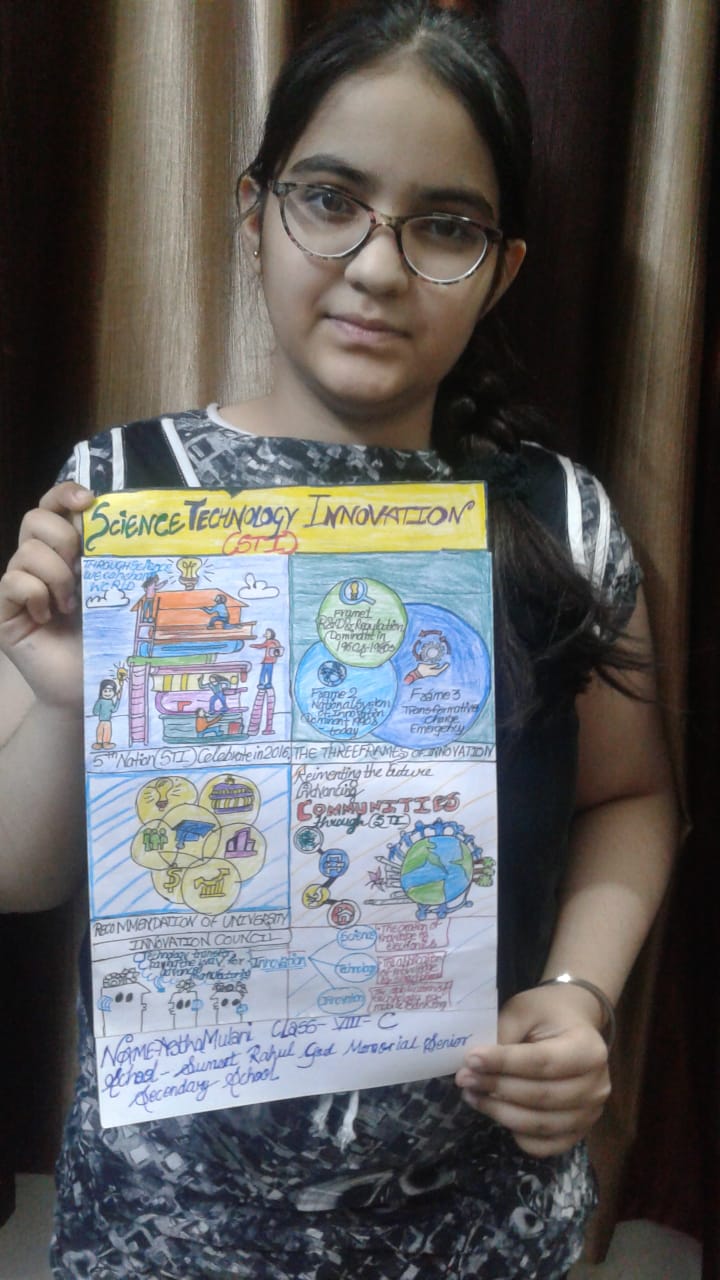 SCIENCE TECHNOLOGY INNOVATION
(STI)
THROUGH SCIENCE
WE CAN CHANGE
WORLD
Frame1
R&D & Regulation
Dominant in
1960s-1980s
Frame 2
National System
of Innovation
Dominent 1990s
today
Frame 3
Transformative
Change
Emergency
5th Nation (STI) Celebrate in 2016
THE THREE FRAMES OF INNOVATION
RECOMMENDATION OF UNIVERSITY
INNOVATION COUNCIL
Reimenting the future
Advancing
COMMUNITIES
through (STI)
Technology transfer
paving the way for
advance
Manufacturing
Innovation
Science
The creation of
knowledge
Technology
The application
of knowledge
Innovation
NAME- Astha Mulani CLASS- VIII- C
School - Sumart Rahul Goel Memorial Senior
Secondary School